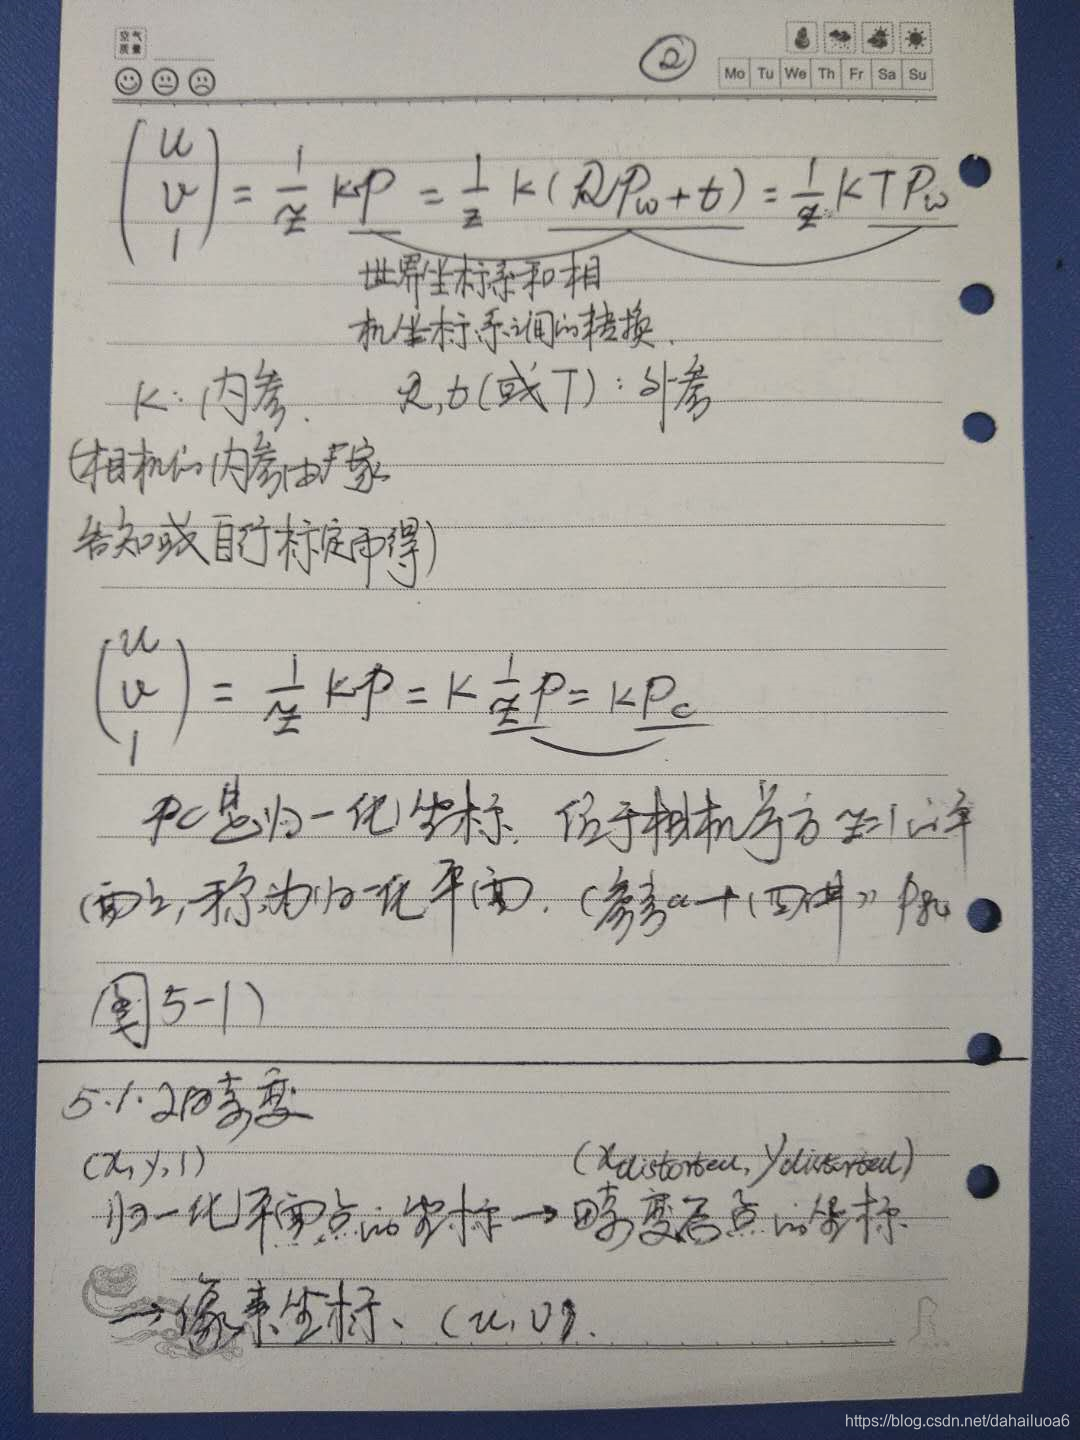 空气
质量
②
Mo Tu We Th Fr Sa Su
(u v 1) = 1/z KP = 1/z K(RPw+t) = 1/z KTPw
世界坐标系和相
机坐标系之间的转换.
K: 内参. R,t(或T): 外参
(相机的内参由厂家
告知或自行标定而得)
(u v 1) = 1/z KP = K 1/z P = KPc
Pc是归一化坐标. 位于相机前方z=1的平
面上,称为归一化平面. (参考《十四讲》
图5-1)
5.1.2畸变
(x,y,1) (xdistorted, ydistorted)
归一化平面点的坐标→畸变后点的坐标
→像素坐标、(u,v).
https://blog.csdn.net/dahailuoa6